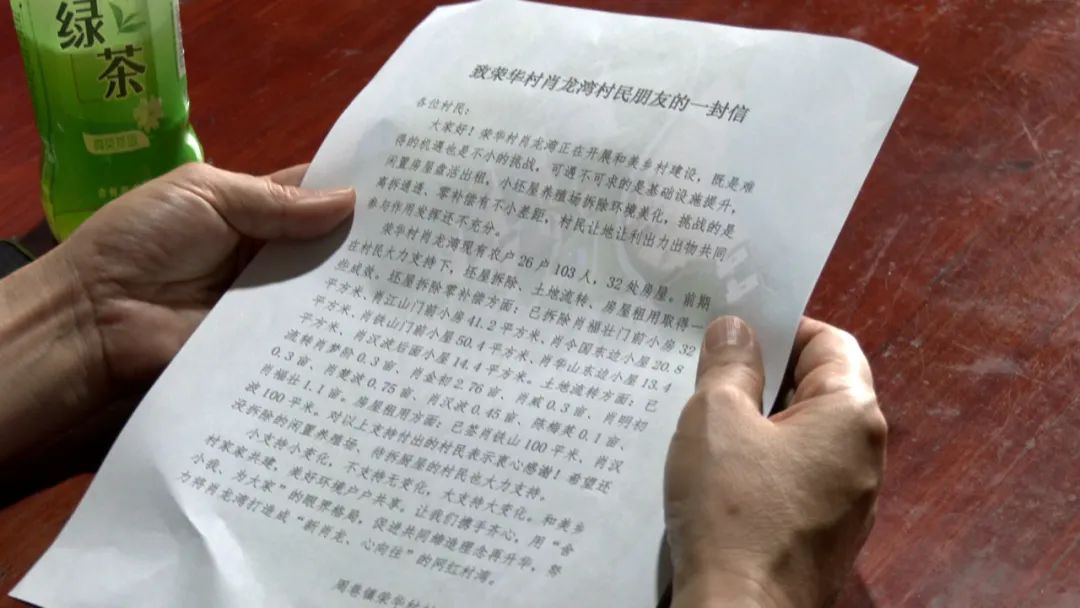 绿茶
致荣华村肖龙湾村民朋友的一封信
各位村民：
大家好！荣华村肖龙湾正在开展和美乡村建设，既是难
得的机遇也是不小的挑战，可遇不可求的是基础设施提升，
闲置房屋盘活出租，小坯屋养殖场拆除环境美化，挑战的是
离拆通透、零补偿有不小差距，村民让地让利出力出物共同
参与作用发挥还不充分。
荣华村肖龙湾现有农户26户103人，32处房屋。前期
在村民大力支持下，坯屋拆除、土地流转、房屋租用取得一
些成效。坯屋拆除零补偿方面：已拆除肖福壮门前小房32
平方米、肖江山门前小房41.2平方米、肖令国东边小屋20.8
平方米、肖铁山门前小屋50.4平方米、肖华山东边小屋13.4
平方米、肖汉波后面小屋14.4平方米。土地流转方面：已
流转肖梦阶0.3亩、肖金初2.76亩、肖威0.3亩、肖明初
0.3亩、肖楚波0.75亩、肖汉波0.45亩、陈梅英0.1亩、
肖福壮1.1亩。房屋租用方面：已签肖铁山100平米、肖汉
波100平米。对以上支持付出的村民表示衷心感谢！希望还
没拆除的闲置养殖场、待拆厨屋的村民也大力支持。
小支持小变化，不支持无变化，大支持大变化。和美乡
村家家共建，美好环境户户共享。让我们携手齐心，用“舍
小我、为大家”的眼界格局，促进共同缔造理念再升华，努
力将肖龙湾打造成“新肖龙、心向往”的网红村湾。
周巷镇荣华村